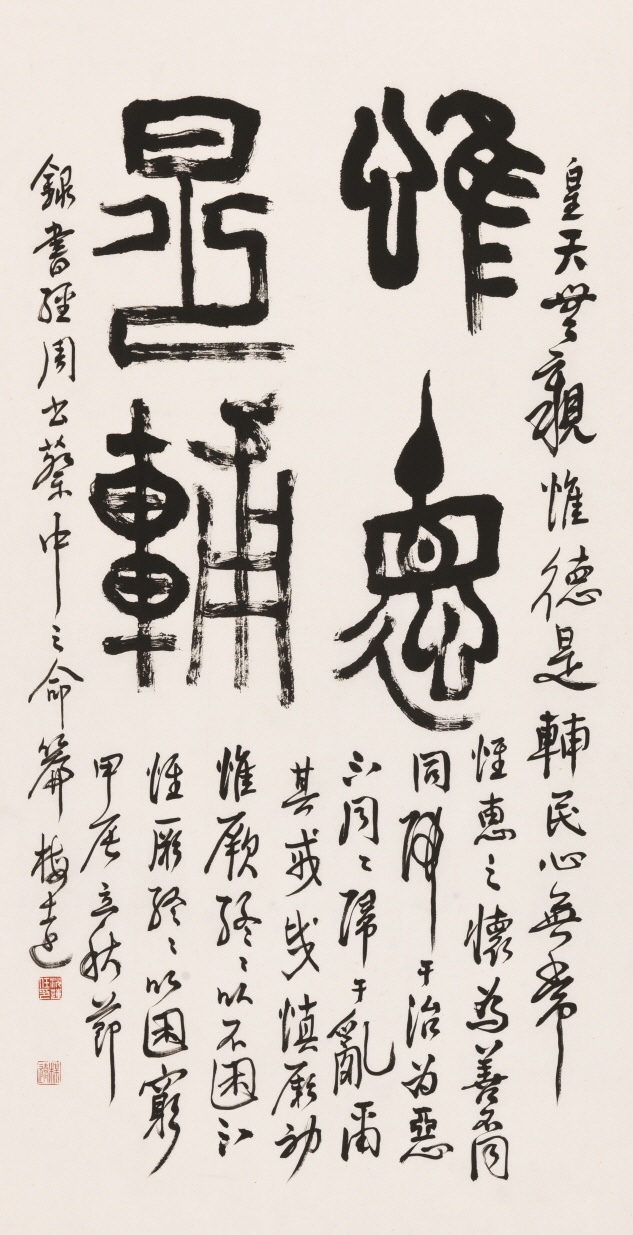 惟德
是輔
皇天無親惟德是輔民心無常
惟惠之懷為善不同
同歸于治為惡
不同々歸于亂爾
其戒哉慎厥初
惟厥終々以不困不
惟厥終々以困窮
甲辰立秋節
錄書經周書蔡中之命篇 梅